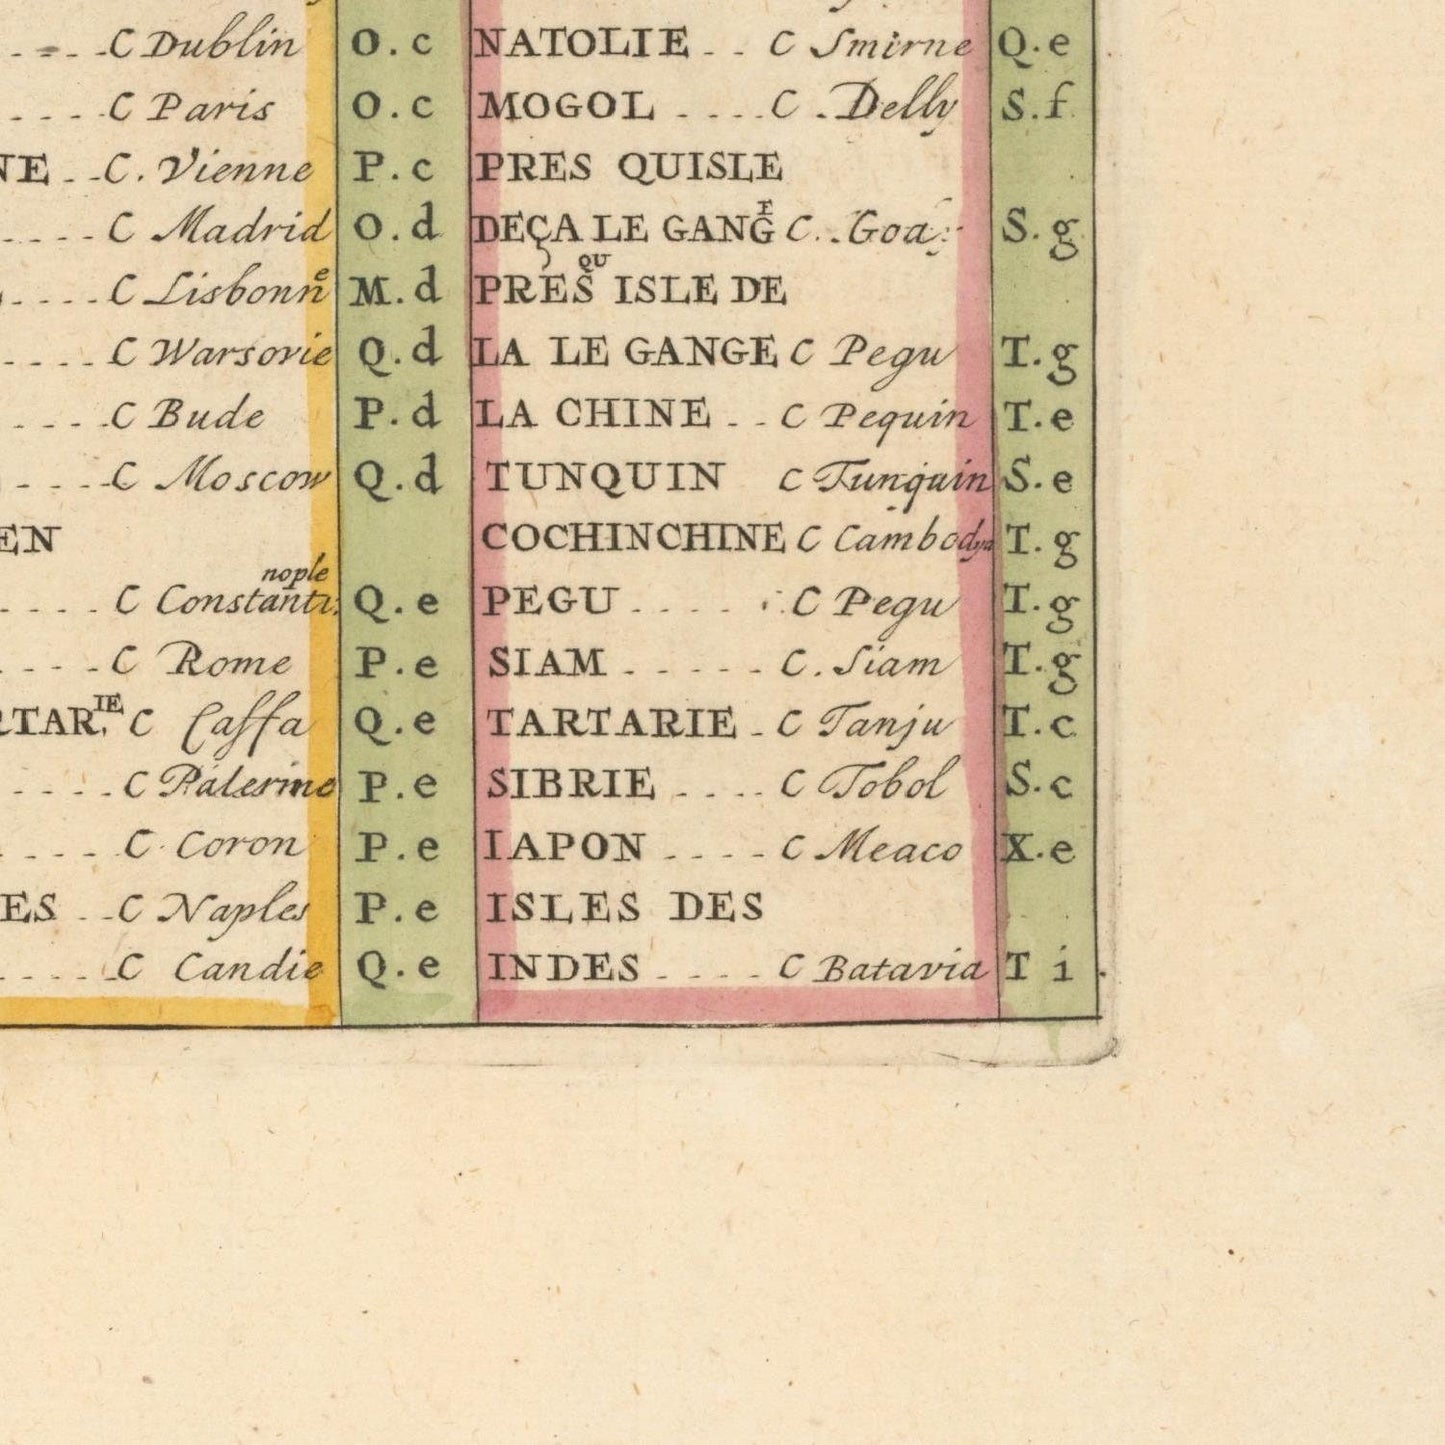 C Dublin O.c NATOLIE C Smirne Q.e
C Paris O.c MOGOL C. Delly S.f
NE C. Vienne P.c PRES QUISLE
C Madrid O.d DEÇA LE GANG^r C. Goa S.g
C Lisbonn^e M.d PRES^QU ISLE DE
C Warsovie Q.d LA LE GANGE C Pegu T.g
C Bude P.d LA CHINE C Pequin T.e
C Moscow Q.d TUNQUIN C Tunquin S.e
EN COCHINCHINE C Cambodya T.g
C Constantinople Q.e PEGU C Pegu T.g
C Rome P.e SIAM C. Siam T.g
RTAR^IE. C Caffa Q.e TARTARIE C Tanju T.c
C Palerme P.e SIBRIE C Tobol S.c
C Coron P.e IAPON C Meaco X.e
ES C Naples P.e ISLES DES
C Candie Q.e INDES C Batavia T i